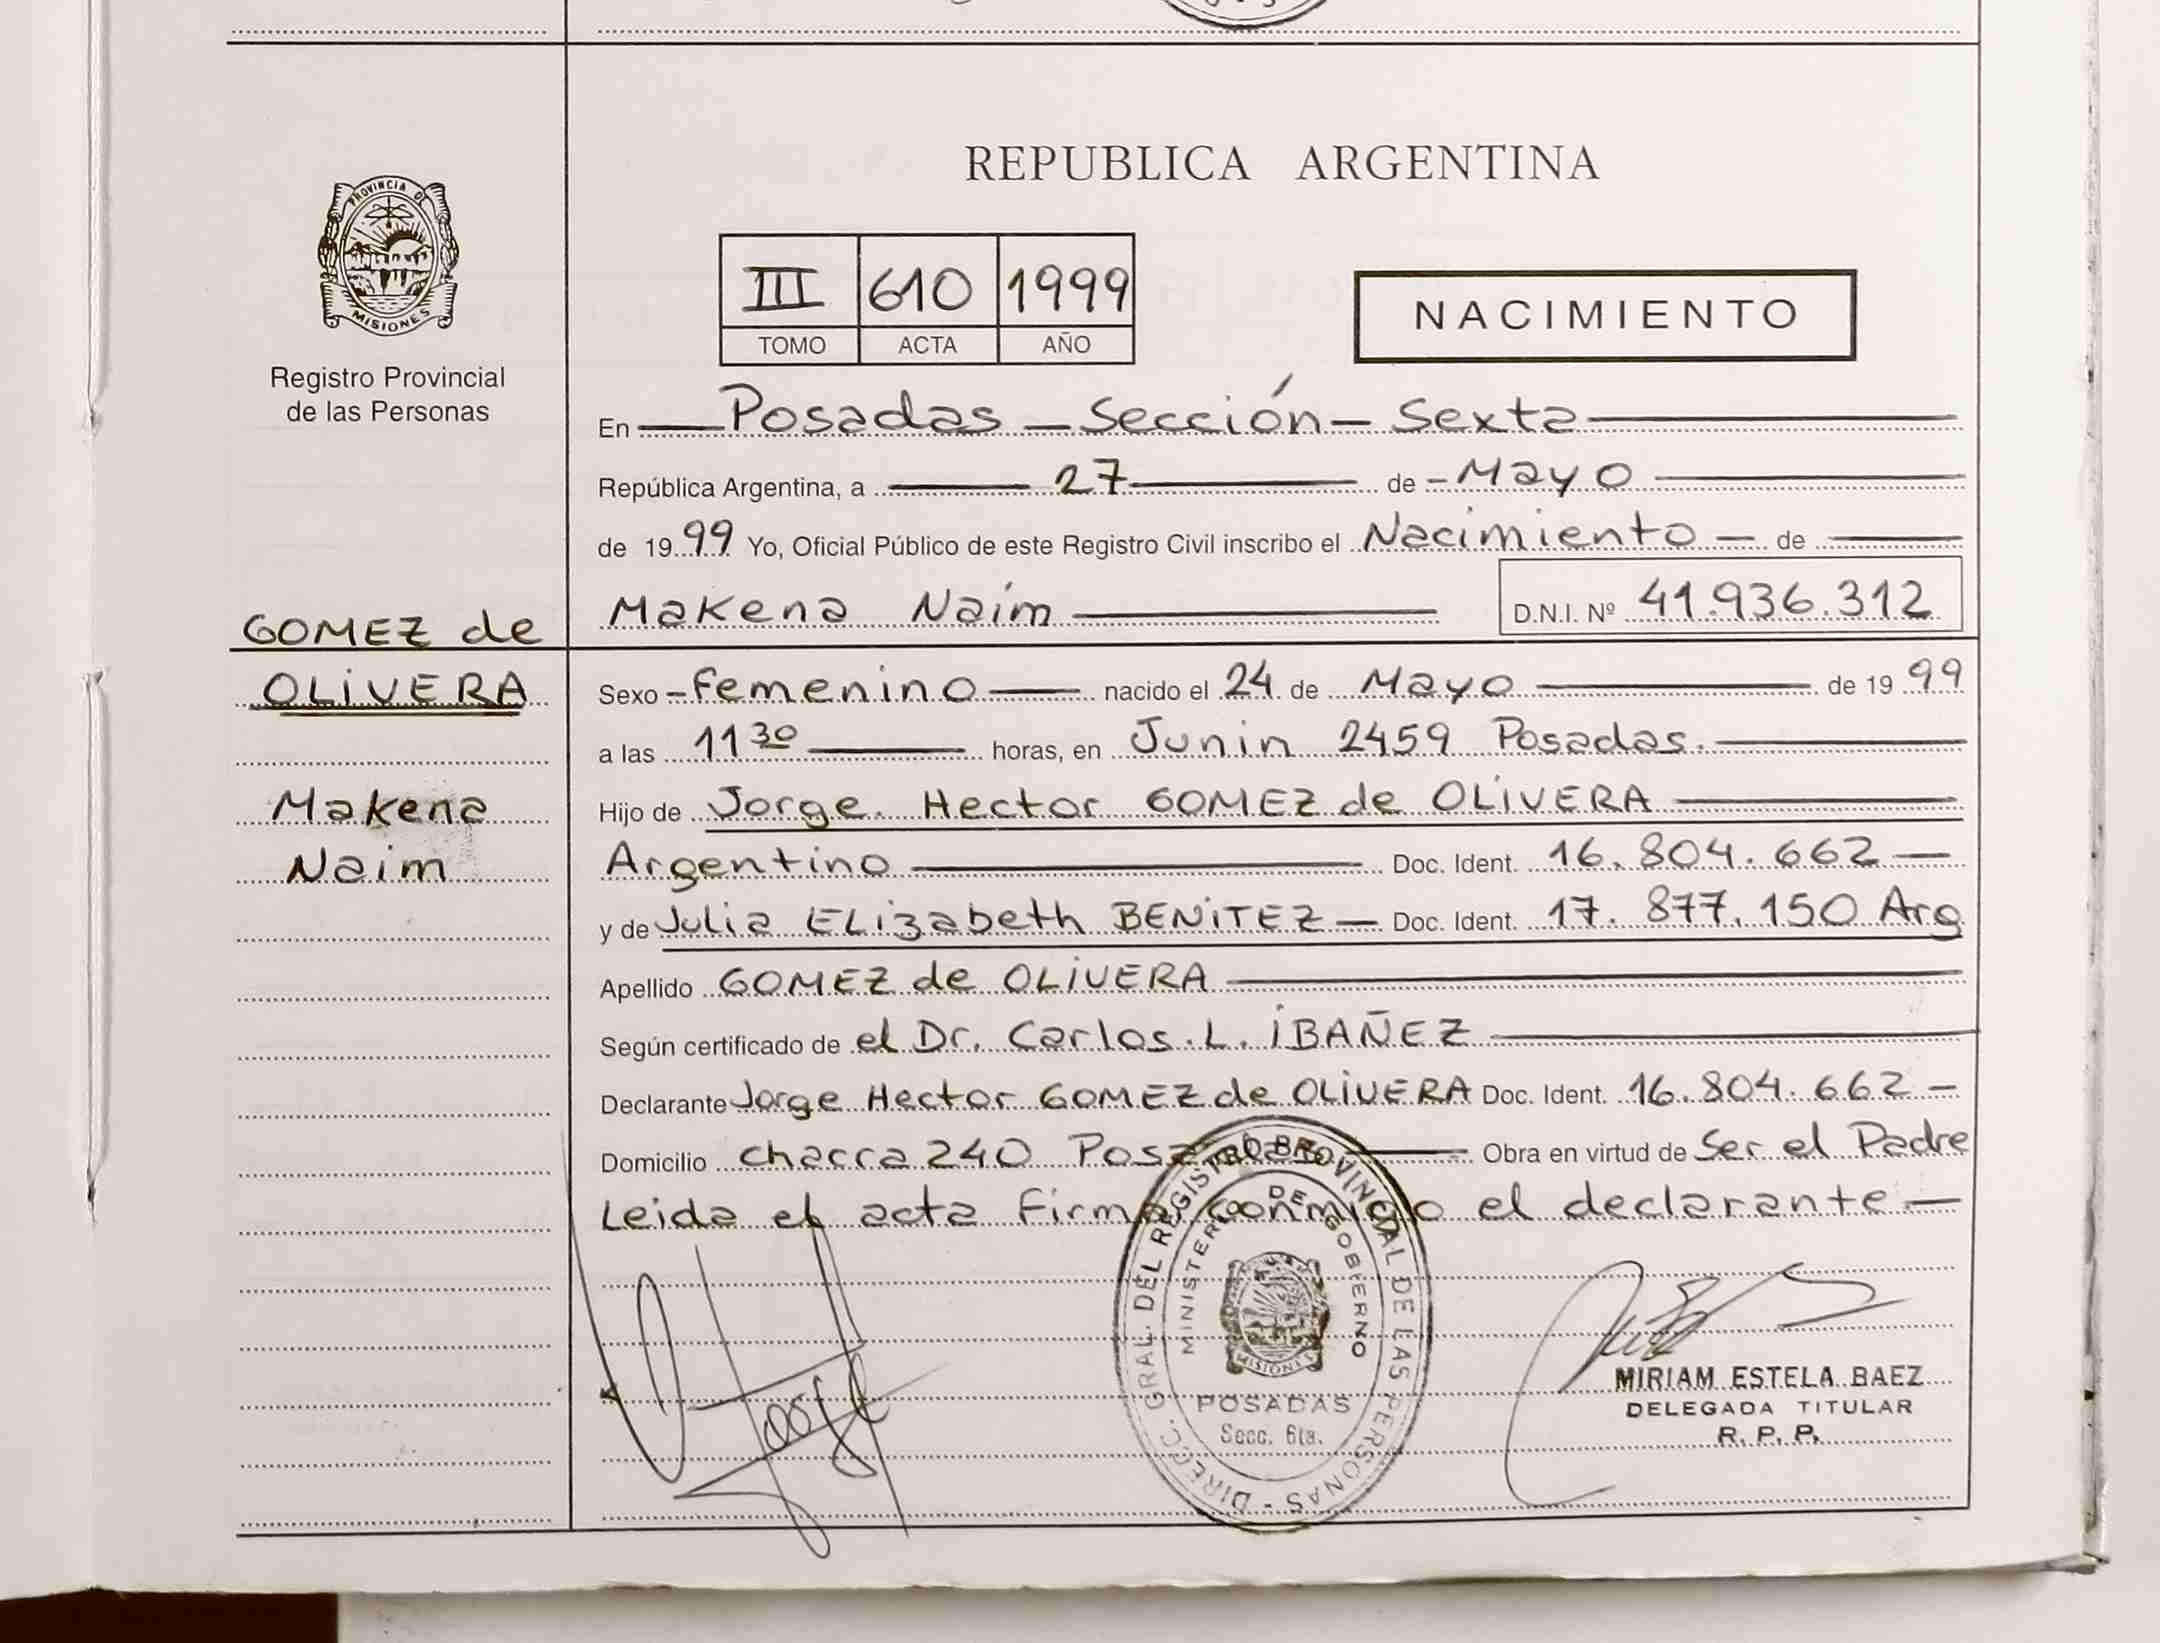 PROVINCIA DE
MISIONES
Registro Provincial
de las Personas
GOMEZ de
OLIVERA
Makena
Naim
REPUBLICA ARGENTINA
III 610 1999
TOMO ACTA AÑO
NACIMIENTO
En Posadas - Sección - Sexta
República Argentina, a 27 de - Mayo
de 1999 Yo, Oficial Público de este Registro Civil inscribo el Nacimiento - de
Makena Naim D.N.I. Nº 41.936.312
Sexo - Femenino nacido el 24 de Mayo de 1999
a las 11 30 horas, en Junin 2459 Posadas.
Hijo de Jorge Hector GOMEZ de OLIVERA
Argentino Doc. Ident. 16.804.662 -
y de Julia Elizabeth BENITEZ - Doc. Ident. 17.877.150 Arg
Apellido GOMEZ de OLIVERA
Según certificado de el Dr. Carlos L. IBAÑEZ
Declarante Jorge Hector GOMEZ de OLIVERA Doc. Ident. 16.804.662 -
Domicilio chacra 240 Posadas Obra en virtud de Ser el Padre
Leida el acta Firma conmigo el declarante -
DIRECC. GRAL. DEL REGISTRO PROVINCIAL DE LAS PERSONAS -
MINISTERIO DE GOBIERNO
MISIONES
POSADAS
Secc. 6ta.
MIRIAM ESTELA BAEZ
DELEGADA TITULAR
R. P. P.